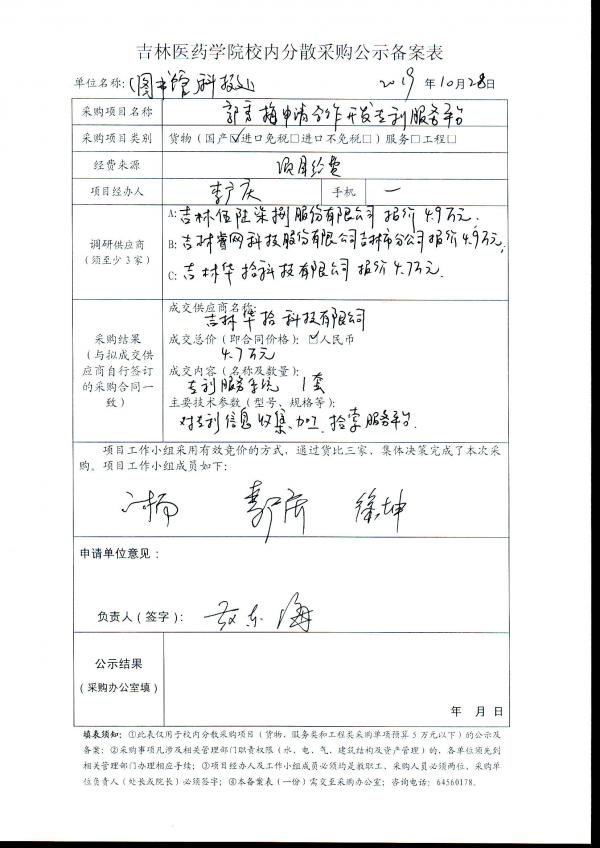 吉林医药学院校内分散采购公示备案表
单位名称：(图书馆科技) 2019 年 10 月 28 日
采购项目名称 申请合作开发专利服务平台
采购项目类别 货物（国产☑进口免税□进口不免税□）服务□工程□
经费来源 项目经费
项目经办人 李广庆 手机 一
调研供应商
（须至少 3 家）
A: 吉林伍陆柒捌股份有限公司 报价 4.9万元.
B: 吉林睿网科技股份有限公司吉林市分公司报价4.9万元;
C: 吉林华拾科技有限公司 报价 4.7万元.
采购结果
（与拟成交供
应商自行签订
的采购合同一
致）
成交供应商名称:
吉林华拾科技有限公司
成交总价（即合同价格）：☑人民币
4.7万元
成交内容（名称及数量）:
专利服务系统 1套
主要技术参数（型号、规格等）:
对专利信息收集、加工、检索服务平台.
项目工作小组采用有效竞价的方式，通过货比三家，集体决策完成了本次采
购。项目工作小组成员如下：
李广庆 徐坤
申请单位意见：
负责人（签字）：
公示结果
（采购办公室填）
年 月 日
填表须知：①此表仅用于校内分散采购项目（货物、服务类和工程类采购单项预算 5 万元以下）的公示及
备案；②采购事项凡涉及相关管理部门职责权限（水、电、气、建筑结构及资产管理）的，各单位须先到
相关管理部门办理相应手续；③项目经办人及工作小组成员必须均是教职工、采购人员必须两位，采购单
位负责人（处长或院长）必须签字；④本备案表（一份）需交至采购办公室；咨询电话：64560178.